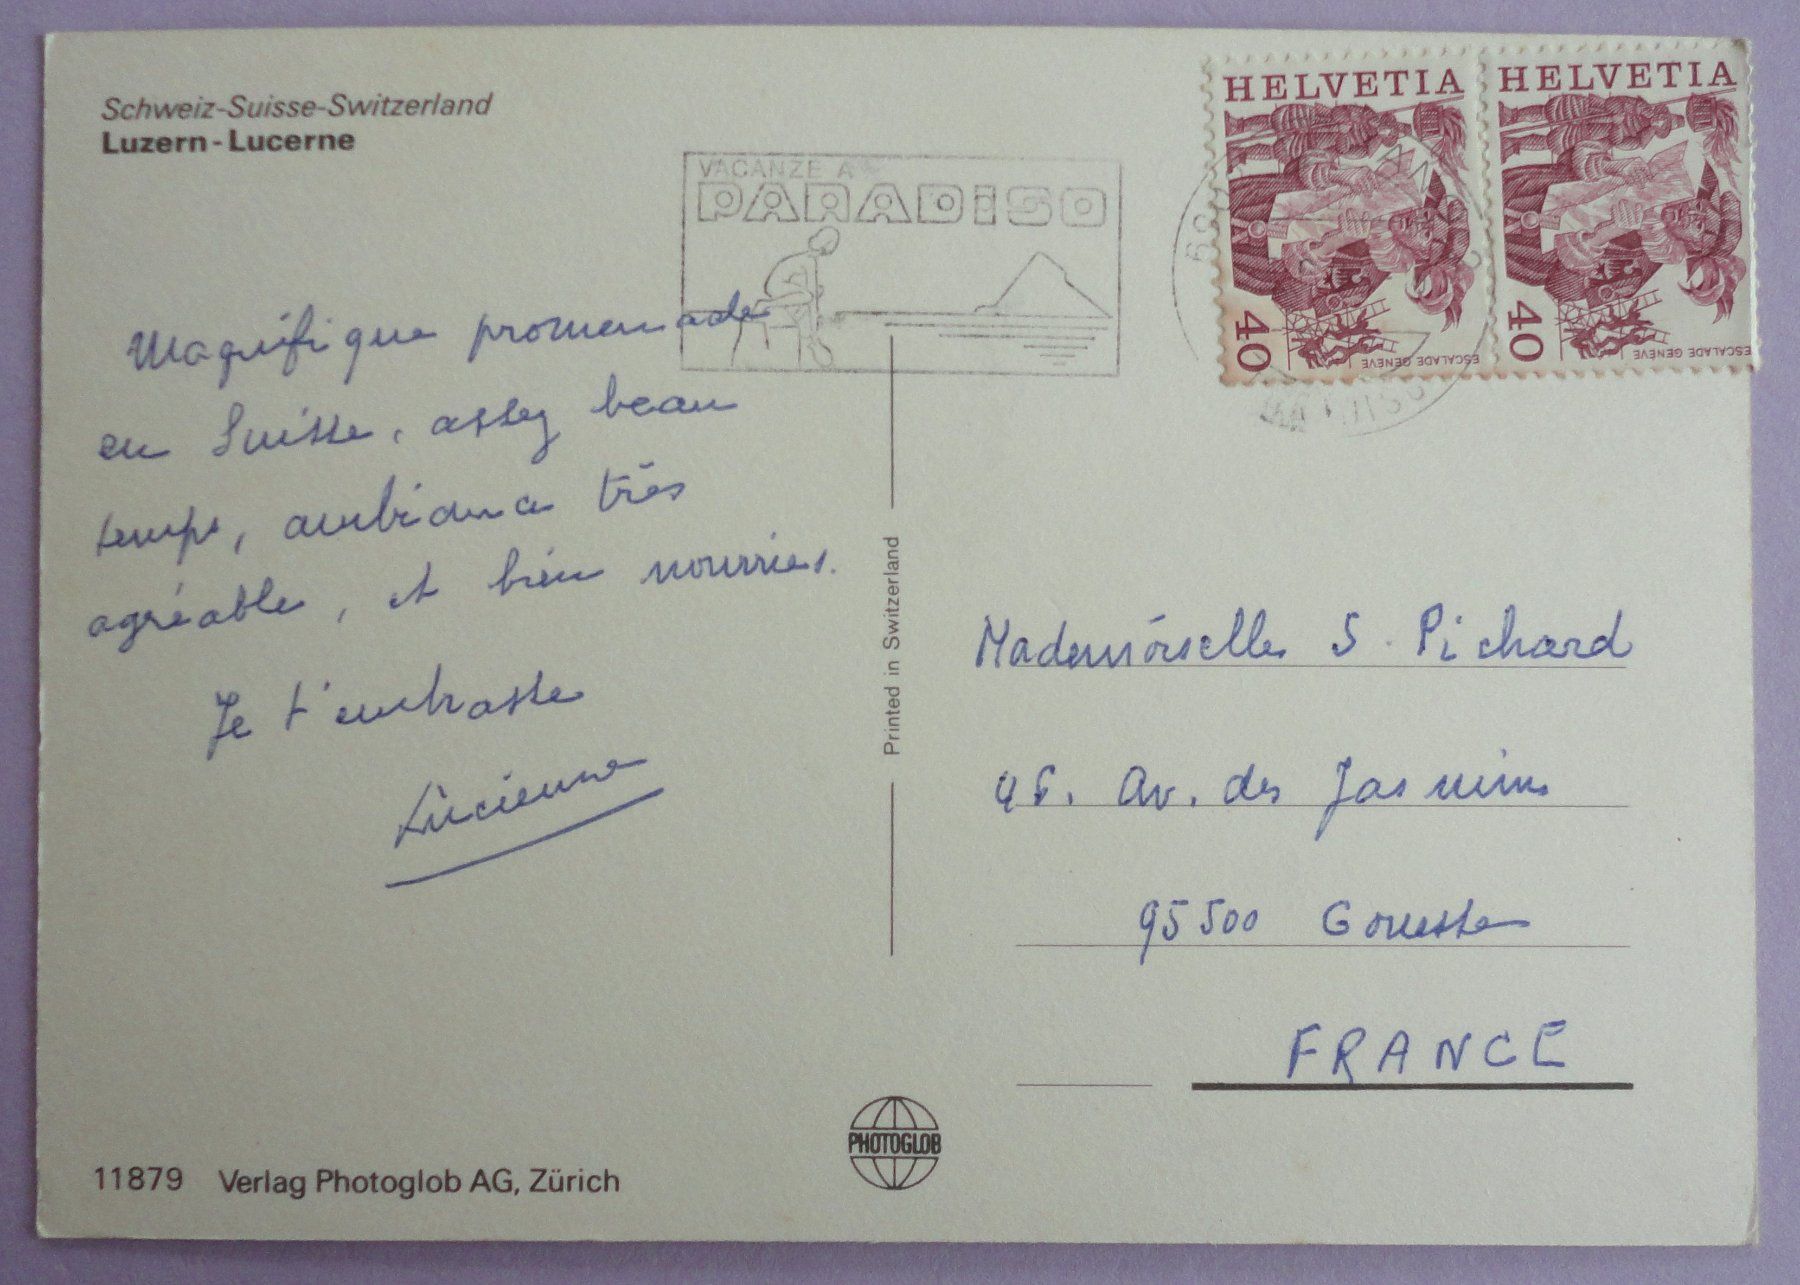 Schweiz-Suisse-Switzerland
Luzern-Lucerne
VACANZE A
PARADISO
HELVETIA
40
ESCALADE GENÈVE
HELVETIA
40
ESCALADE GENÈVE
Magnifique promenade
en Suisse, assez beau
temps, ambiance très
agréable, et bien nourries.
Je t'embrasse
Lucienne
Printed in Switzerland
Mademoiselle S. Pichard
Av. des Jasmins
95500 Gonesse
FRANCE
PHOTOGLOB
11879 Verlag Photoglob AG, Zürich